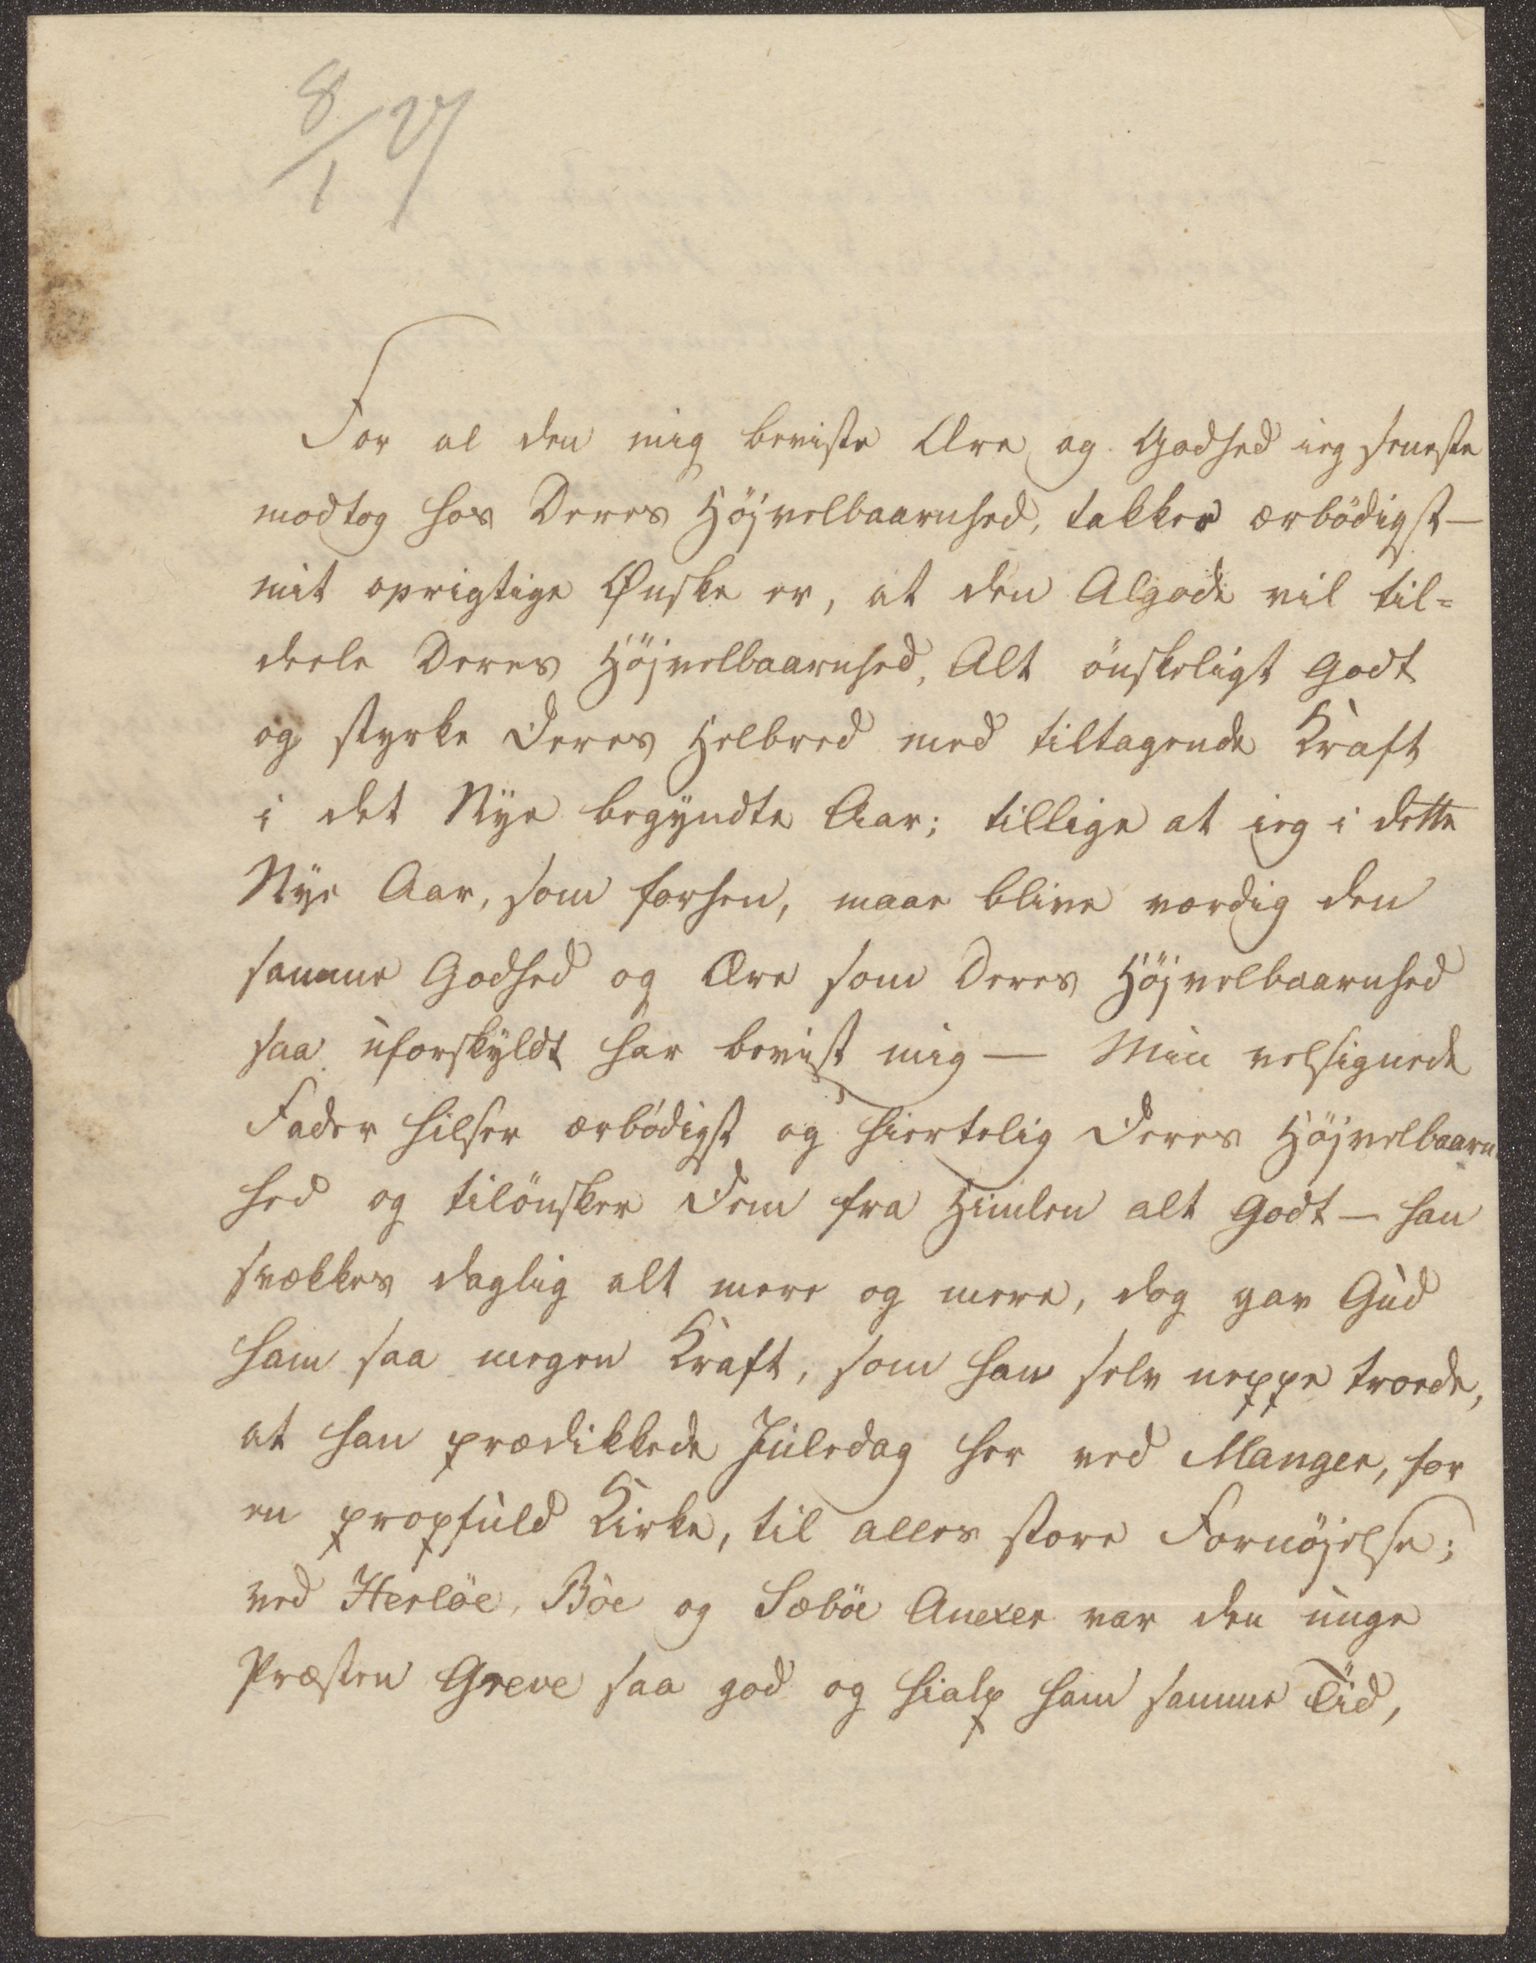 8/1 27
For al den mig beviste Ære og Godhed ieg seneste
modtog hos Deres Höjvelbaarnhed, takker ærbödigst —
mit oprigtige Ønske er, at den Algode vil til=
deele Deres Höjvelbaarnhed, Alt önskeligt Godt
og styrke Deres Helbred med tiltagende Kraft
i det Nye begyndte Aar; tillige at ieg i dette
Nye Aar, som forhen, maae blive værdig den
samme Godhed og Ære som Deres Höjvelbaarnhed
saa uforskyldt har bevist mig — Min velsignede
Fader hilser ærbödigst og hiertelig Deres Höjvelbaarn
hed og tilönsker Dem fra Himlen alt Godt — han
svækkes daglig alt mere og mere, dog gav Gud
ham saa megen Kraft, som han selv neppe troede,
at han prædikkede Juledag her ved Manger, for
en propfuld Kirke, til alles store Fornöjelse;
ved Herlöe, Böe og Sæböe Anexer var den unge
Præsten Greve saa god og hialp ham samme Tid,